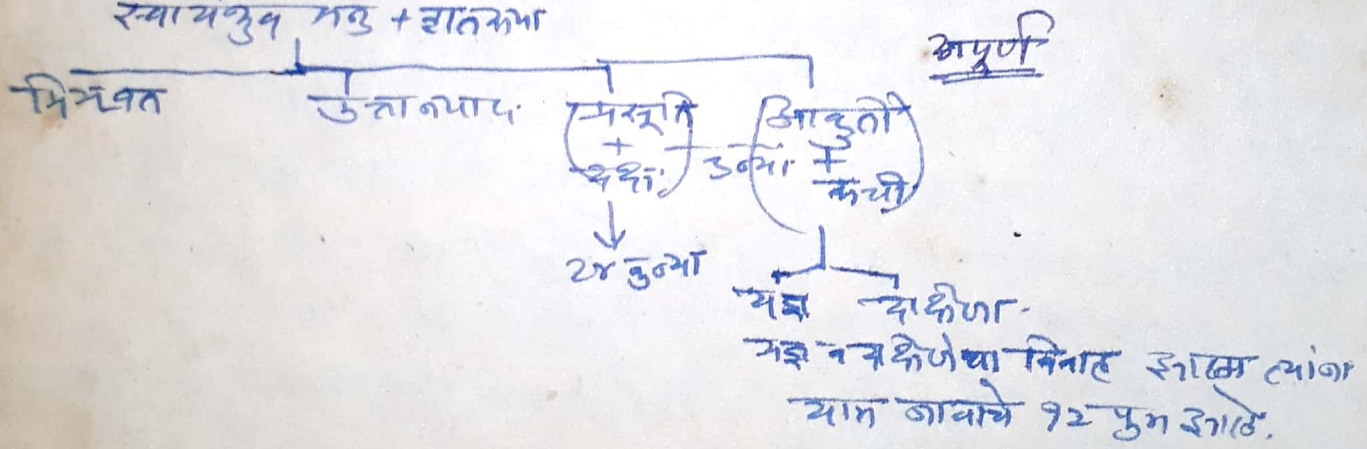 स्वायंभुव मनु + शतरूपा
अपूर्ण
प्रियव्रत उत्तानपाद प्रसूति आकुती
+ कन्या +
दक्ष रूची
२४ कन्या
यज्ञ दक्षिणा
यज्ञ व दक्षिणेचा विवाह झाला त्यांना
याम नावाचे १२ पुत्र झाले.